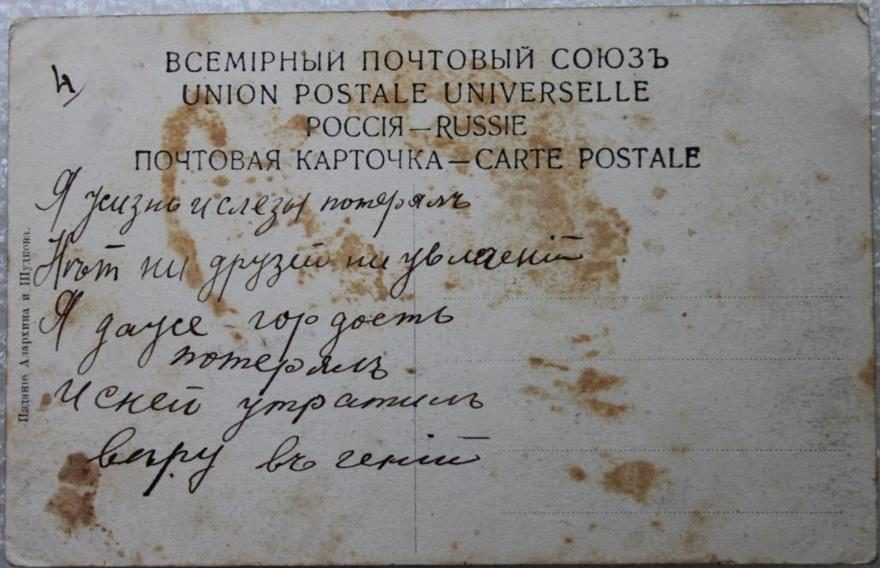 4
ВСЕМІРНЫЙ ПОЧТОВЫЙ СОЮЗЪ
UNION POSTALE UNIVERSELLE
РОССІЯ—RUSSIE
ПОЧТОВАЯ КАРТОЧКА—CARTE POSTALE
Я жизнь и слезы потерялъ
Нѣт ни друзей ни увлеченій
Я даже гордость
потерялъ
И с ней утратилъ
вѣру въ геній
Изданіе Апархина и Щудкова.